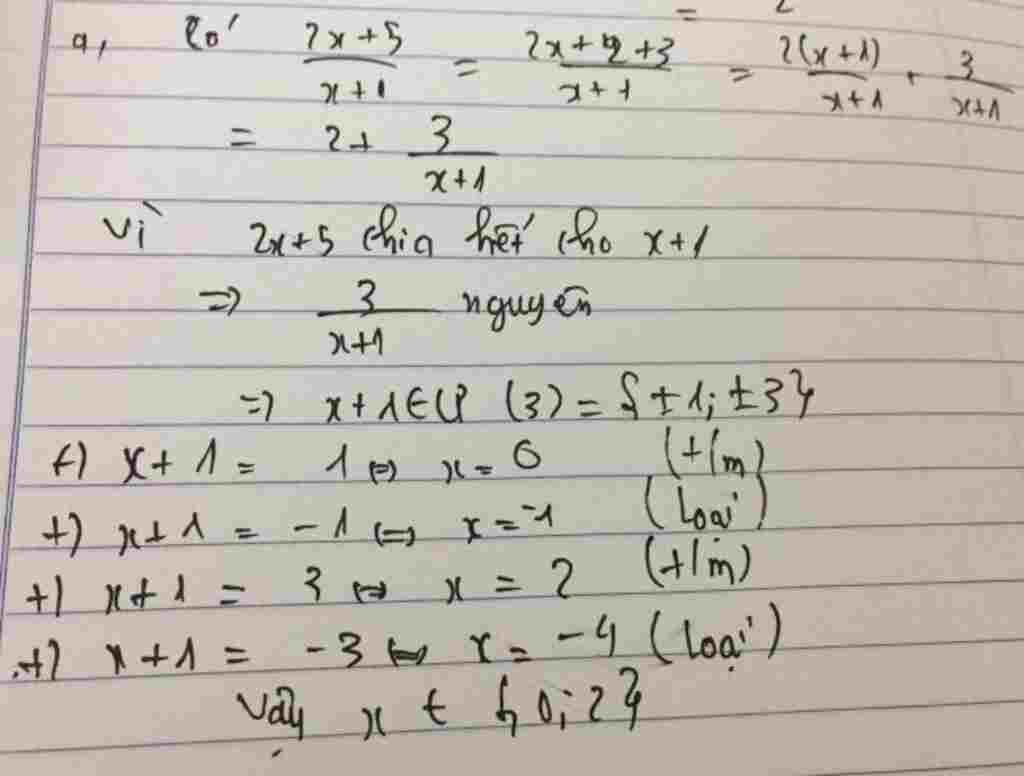 = 2
a, Có (2x+5)/(x+1) = (2x+2+3)/(x+1) = 2(x+1)/(x+1) + 3/(x+1)
= 2 + 3/(x+1)
Vì 2x+5 chia hết cho x+1
=> 3/(x+1) nguyên
=> x+1 ∈ Ư (3) = {±1; ±3}
+) x+1 = 1 <=> x = 0 (t/m)
+) x+1 = -1 <=> x = -1 (Loại)
+) x+1 = 3 <=> x = 2 (t/m)
+) x+1 = -3 <=> x = -4 (Loại)
Vậy x ∈ {0; 2}